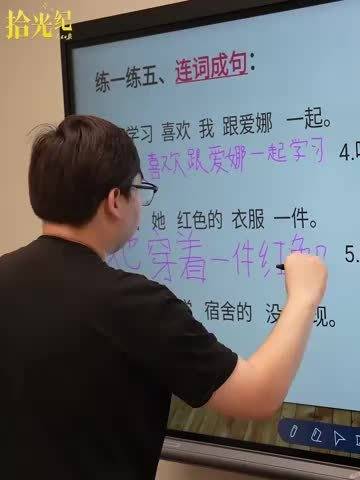 拾光纪
练一练五、连词成句：
学习 喜欢 我 跟爱娜 一起。
喜欢跟爱娜一起学习 4.
她 红色的 衣服 一件。
她穿着一件红色 5.
宿舍的 没 现。